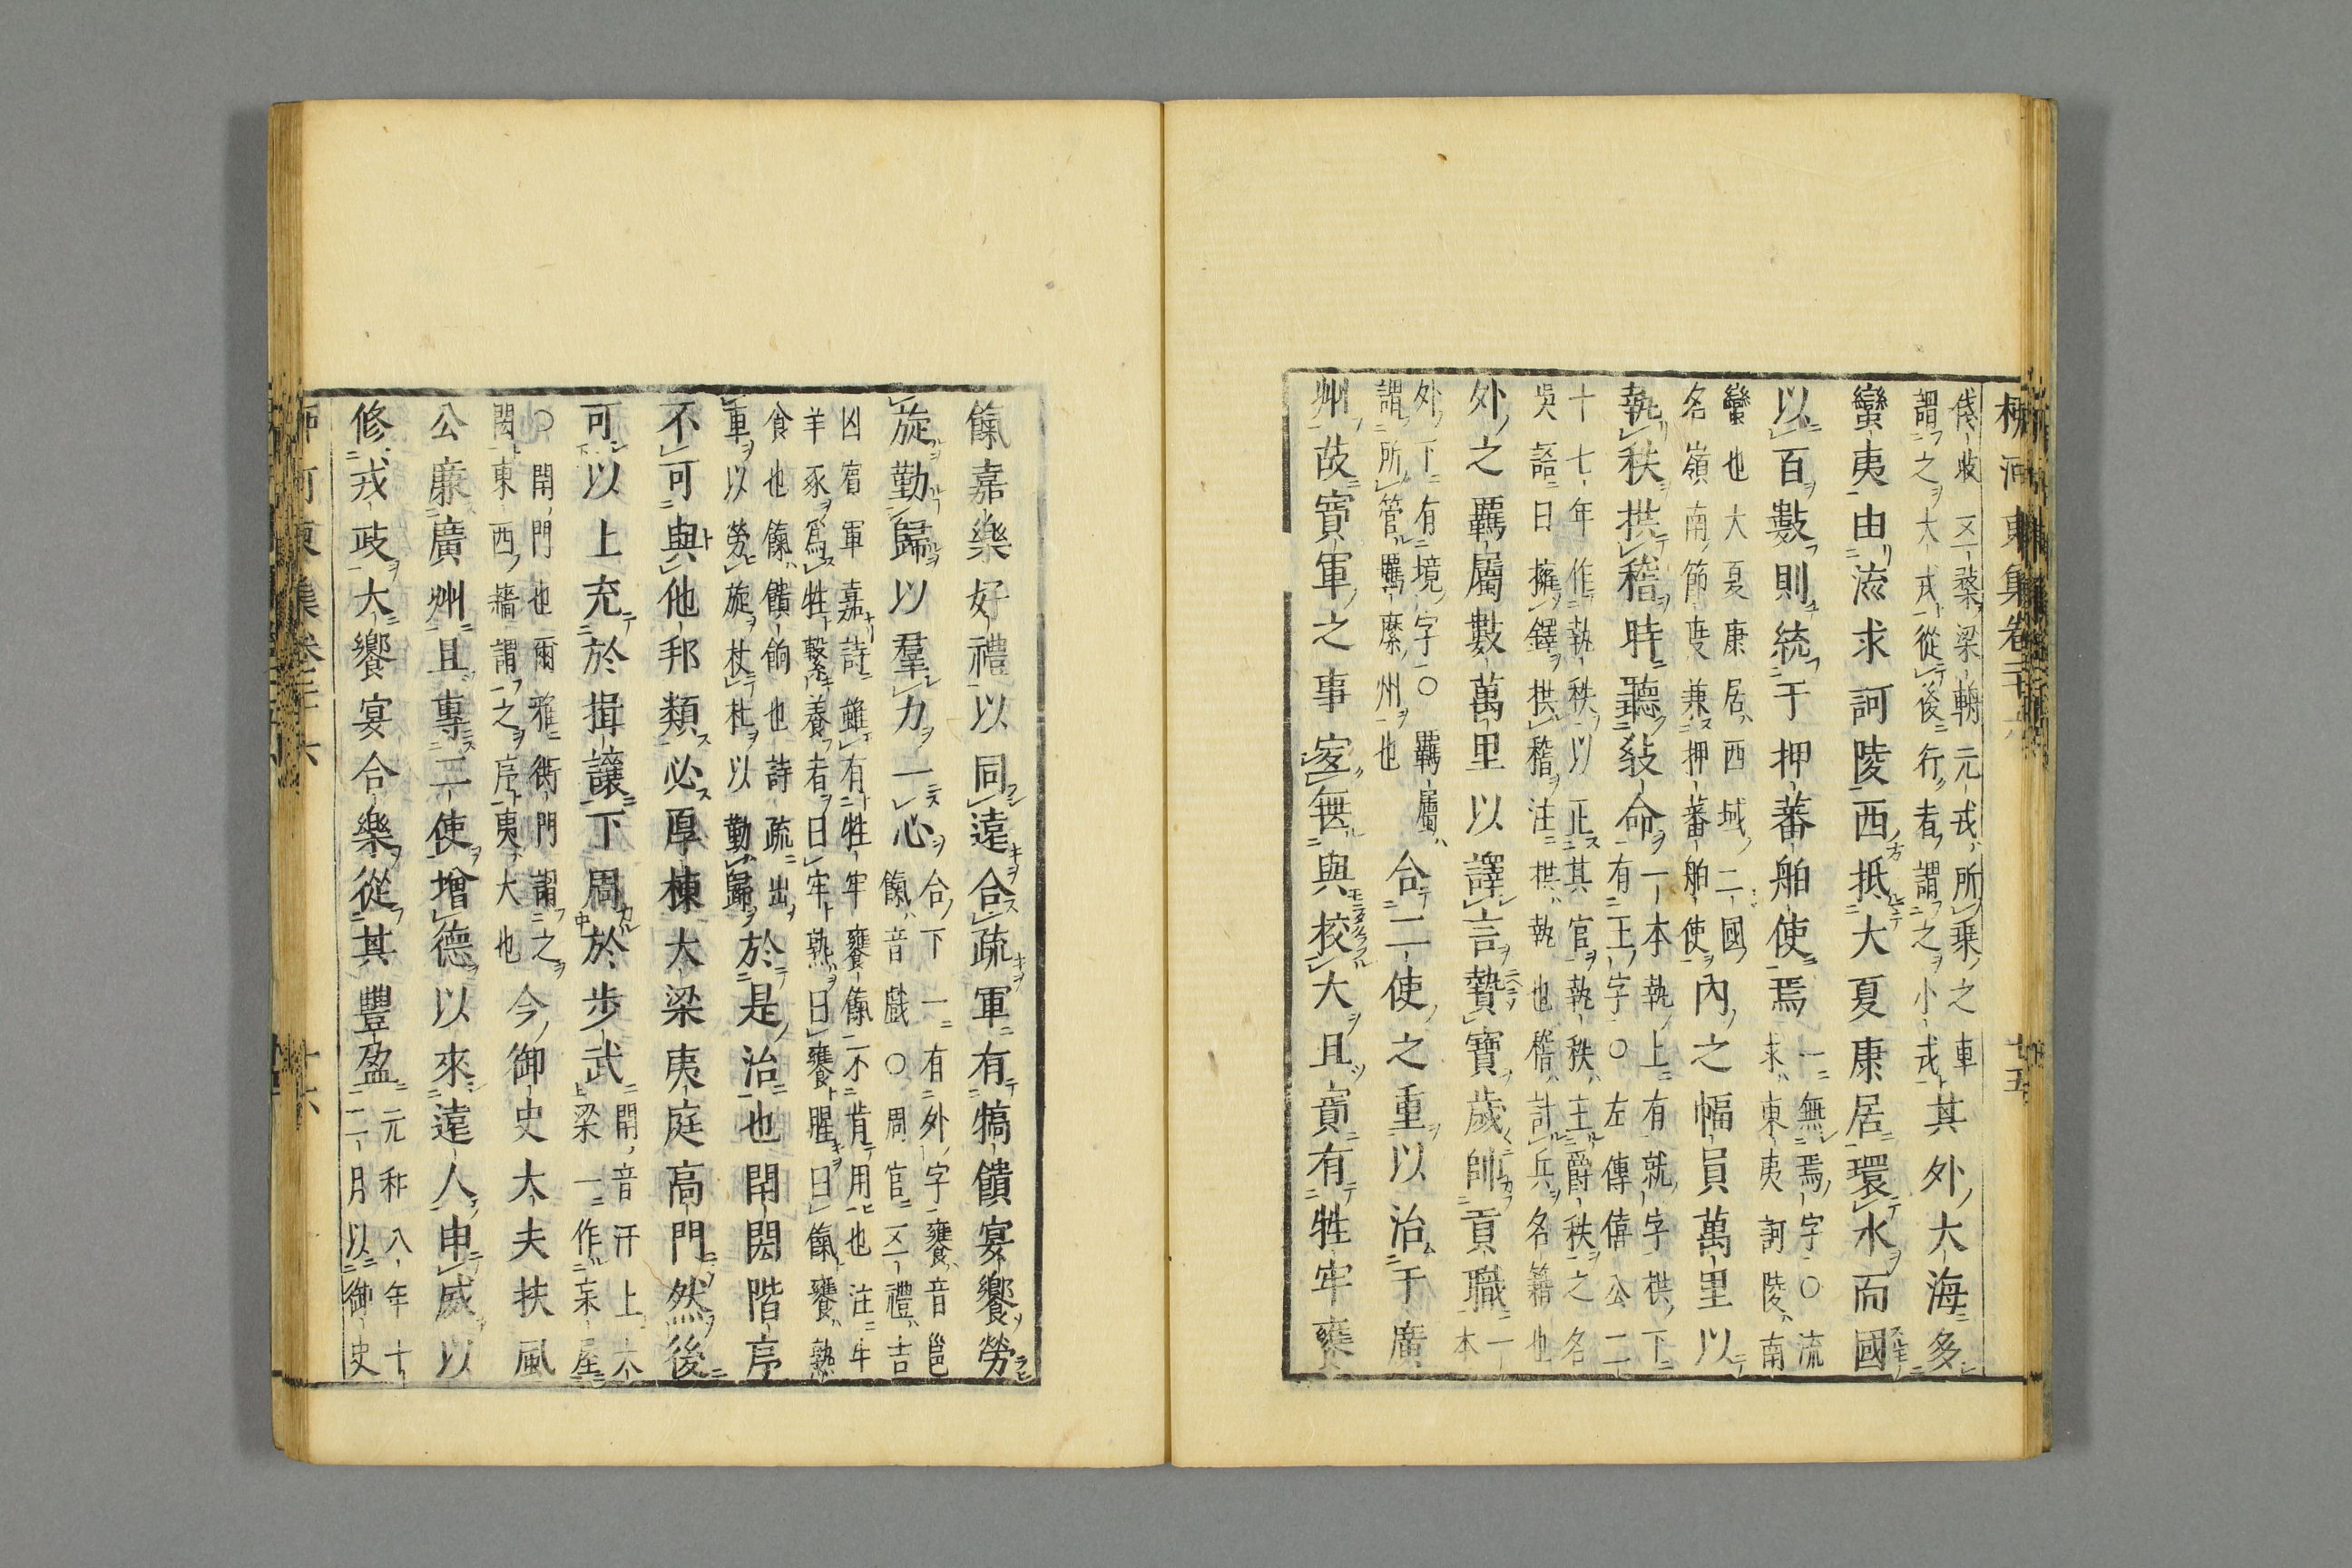 柳河東集卷二十六 十五
俴收五楘梁輈元戎所乘之車
謂之大戎從後行者謂之小戎
其外大海多
蠻夷由流求訶陵西抵大夏康居環水而國
以百數則統于押蕃舶使焉
一無焉字○流
求東夷訶陵南
蠻也大夏康居西域二國
名嶺南節度兼押蕃舶使
內之幅員萬里以
執秩拱稽時聽敎命
一本執上有就字拱下
有王字○左傳僖公二
十七年作執秩以正其官執秩主爵秩之名
吳語曰擁鐸拱稽注拱執也稽計兵名籍也
外之羈屬數萬里以譯言贄寶歲帥貢職
一
本
外下有境字○羈屬
謂所管羈縻州也
合二使之重以治于廣
州故賓軍之事宜無與校大且賓有牲牢饔
餼嘉樂好禮以同遠合疏軍有犒饋宴饗勞
旋勤歸以羣力一心
合下一有外字饔音邕
餼音戲○周官五禮吉
凶賓軍嘉詩雖有牲牢饔餼不肯用也注牛
羊豕爲牲繫養者曰牢熟曰饔腥曰餼饔熟
食也餼饋餉也詩疏出
車以勞旋杕杜以勤歸
於是治也閈閎階序
不可與他邦類必厚棟大梁夷庭高門然後
可以上充於揖讓下周於步武
閈音汗上大
梁一作杗屋
○閈門也爾雅衖門謂之
閎東西牆謂之序夷大也
今御史大夫扶風
公廉廣州且專二使增德以來遠人申威以
修戎政大饗宴合樂從其豐盈
元和八年十
二月以御史
柳河東集卷二十六 十六